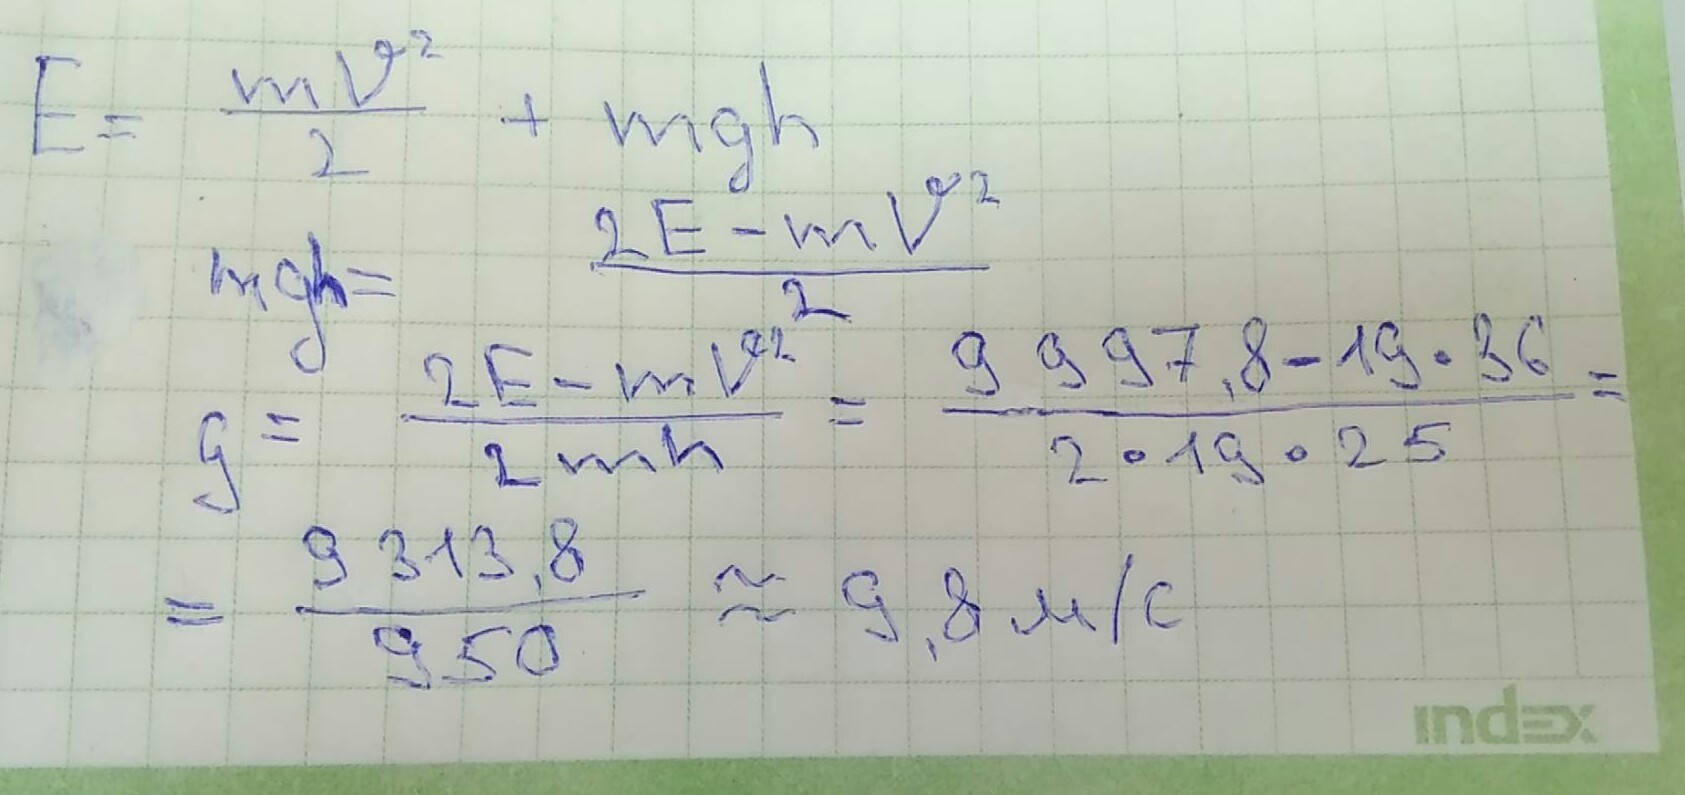 E = mV²/2 + mgh
mgh = (2E - mV²)/2
g = (2E - mV²)/(2mh) = (9997,8 - 19·36)/(2·19·25) =
= 9313,8/950 ≈ 9,8 м/с
index